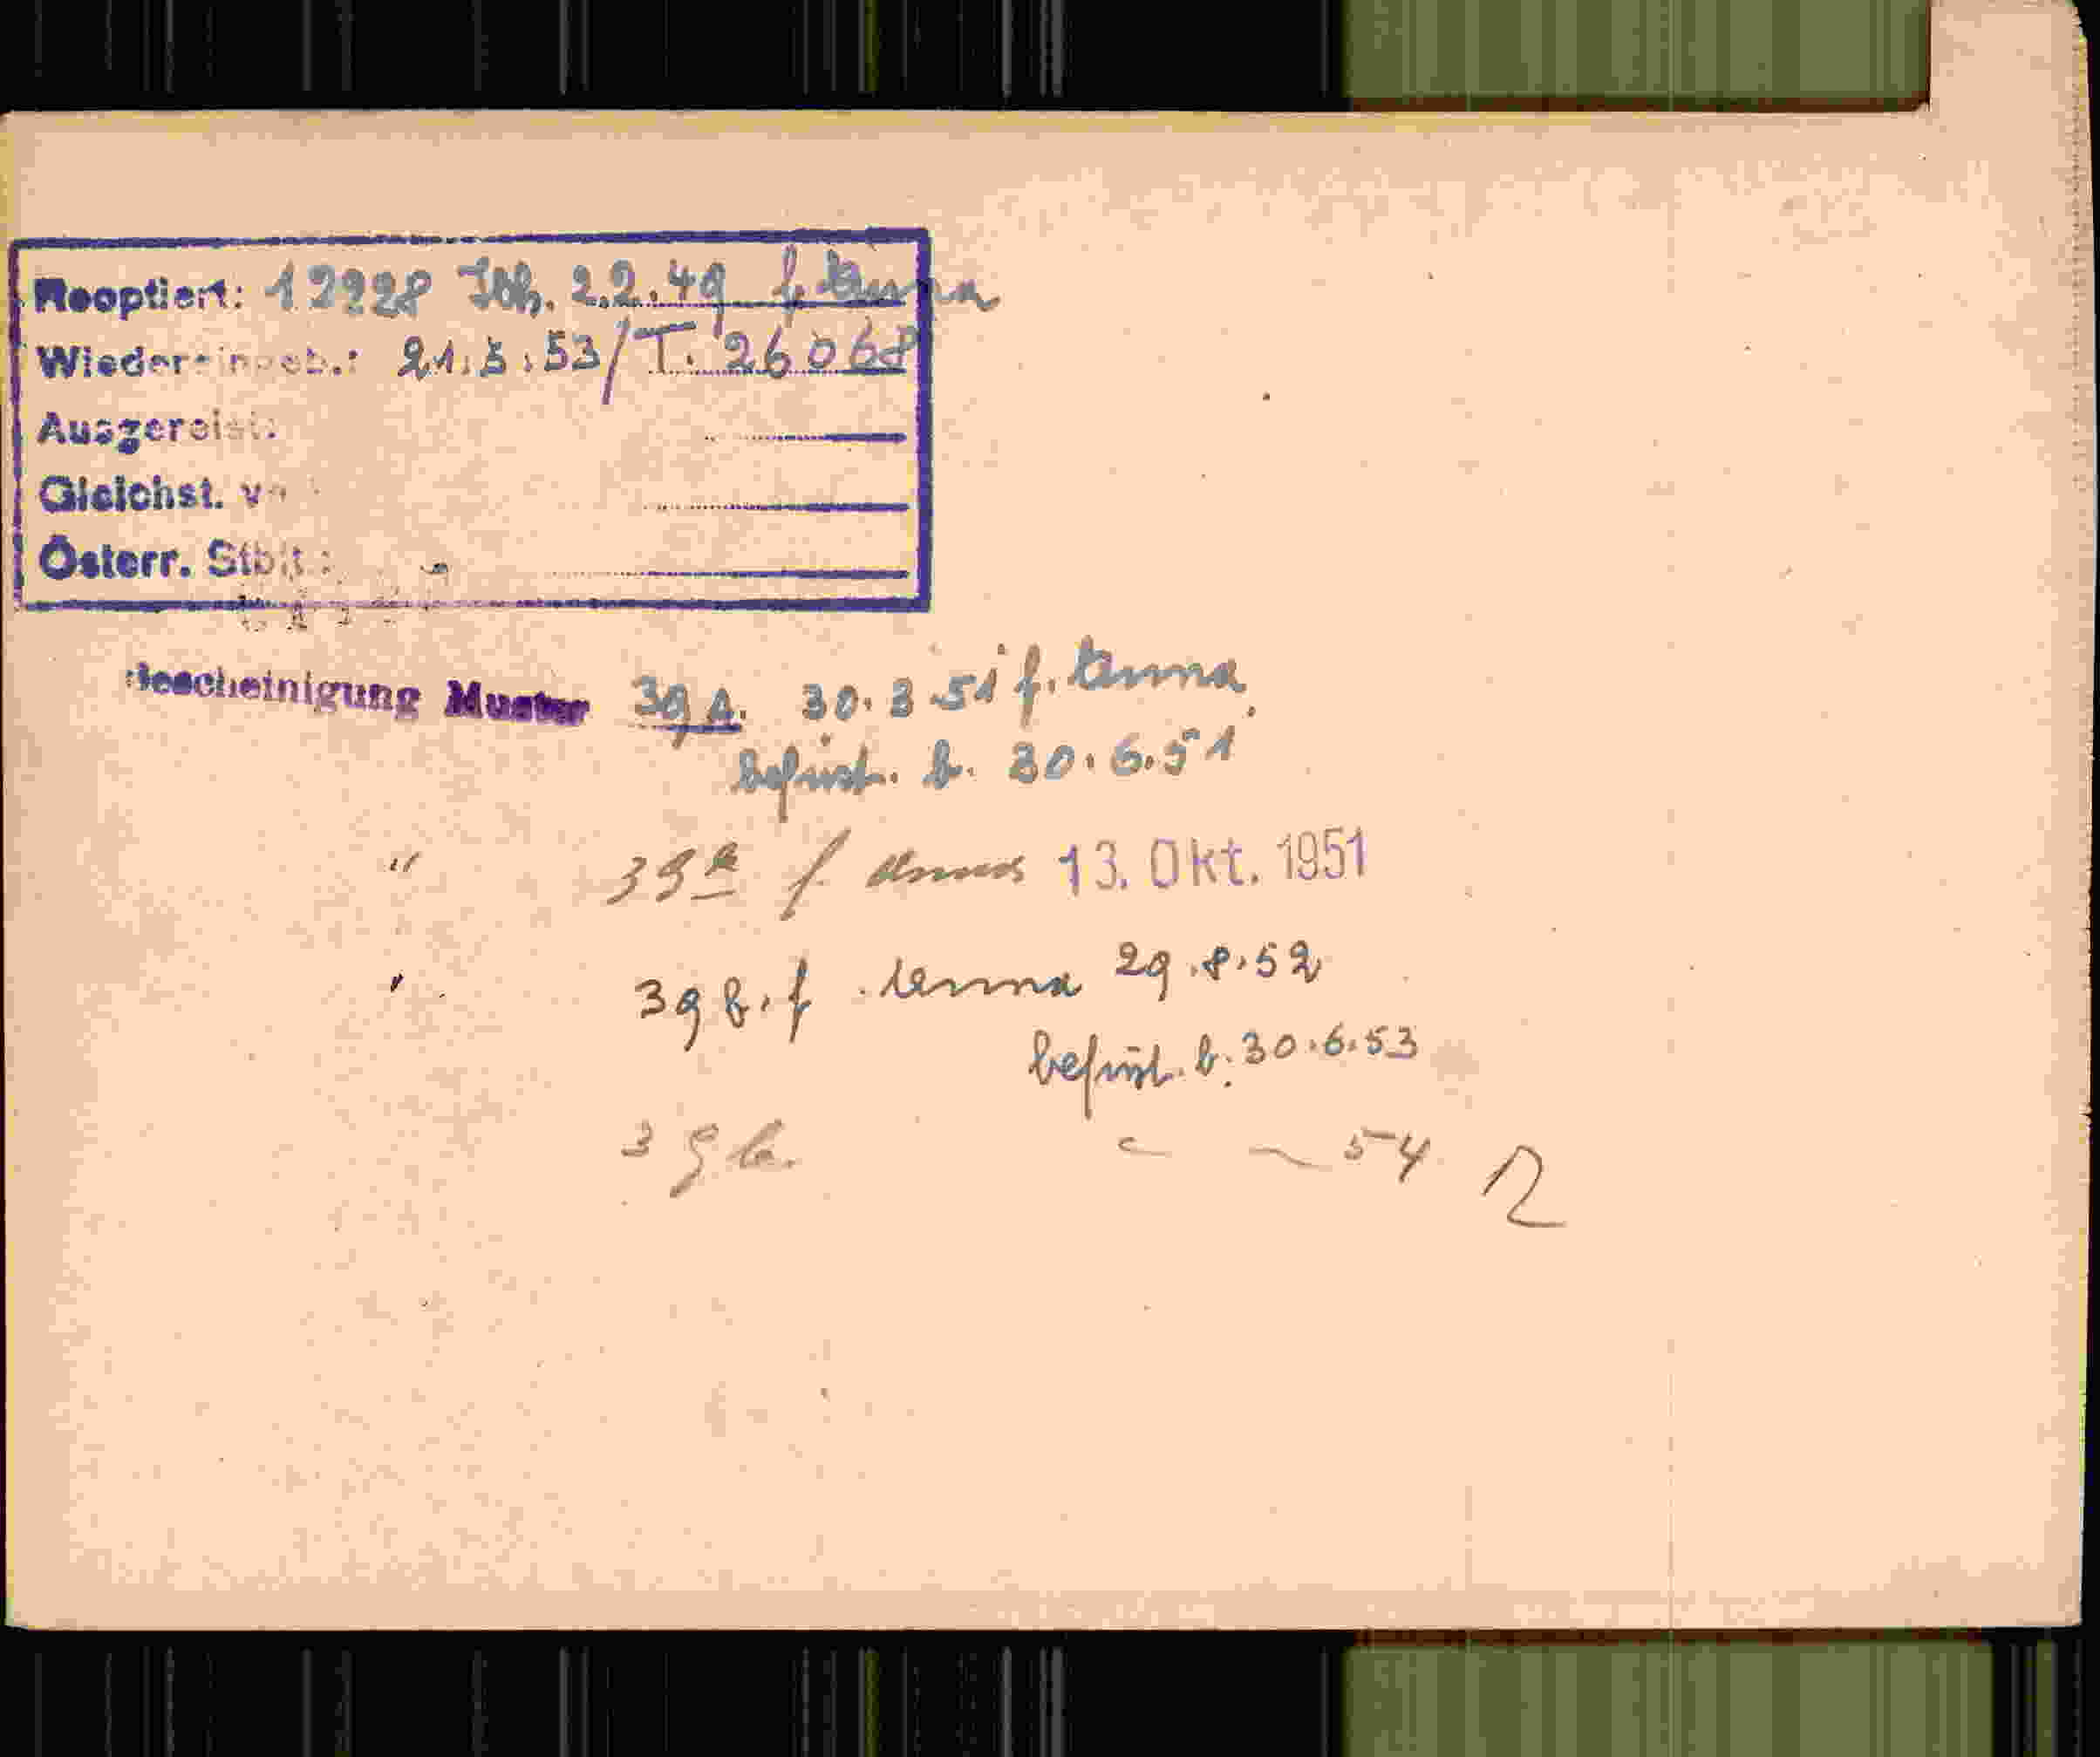 Reoptiert: 12228 Joh. 2.2.49 f. Anna
Wiedereingeb.: 21.5.53/T. 26068
Ausgereist:
Gleichst. v
Österr. Stbll.:
Bescheinigung Muster 39 A. 30.3.51 f. Anna
befrist. b. 30.6.51
" 39 a f Anna 13. Okt. 1951
" 39 b. f. Anna 29.8.52
befrist. b. 30.6.53
39 b. 54